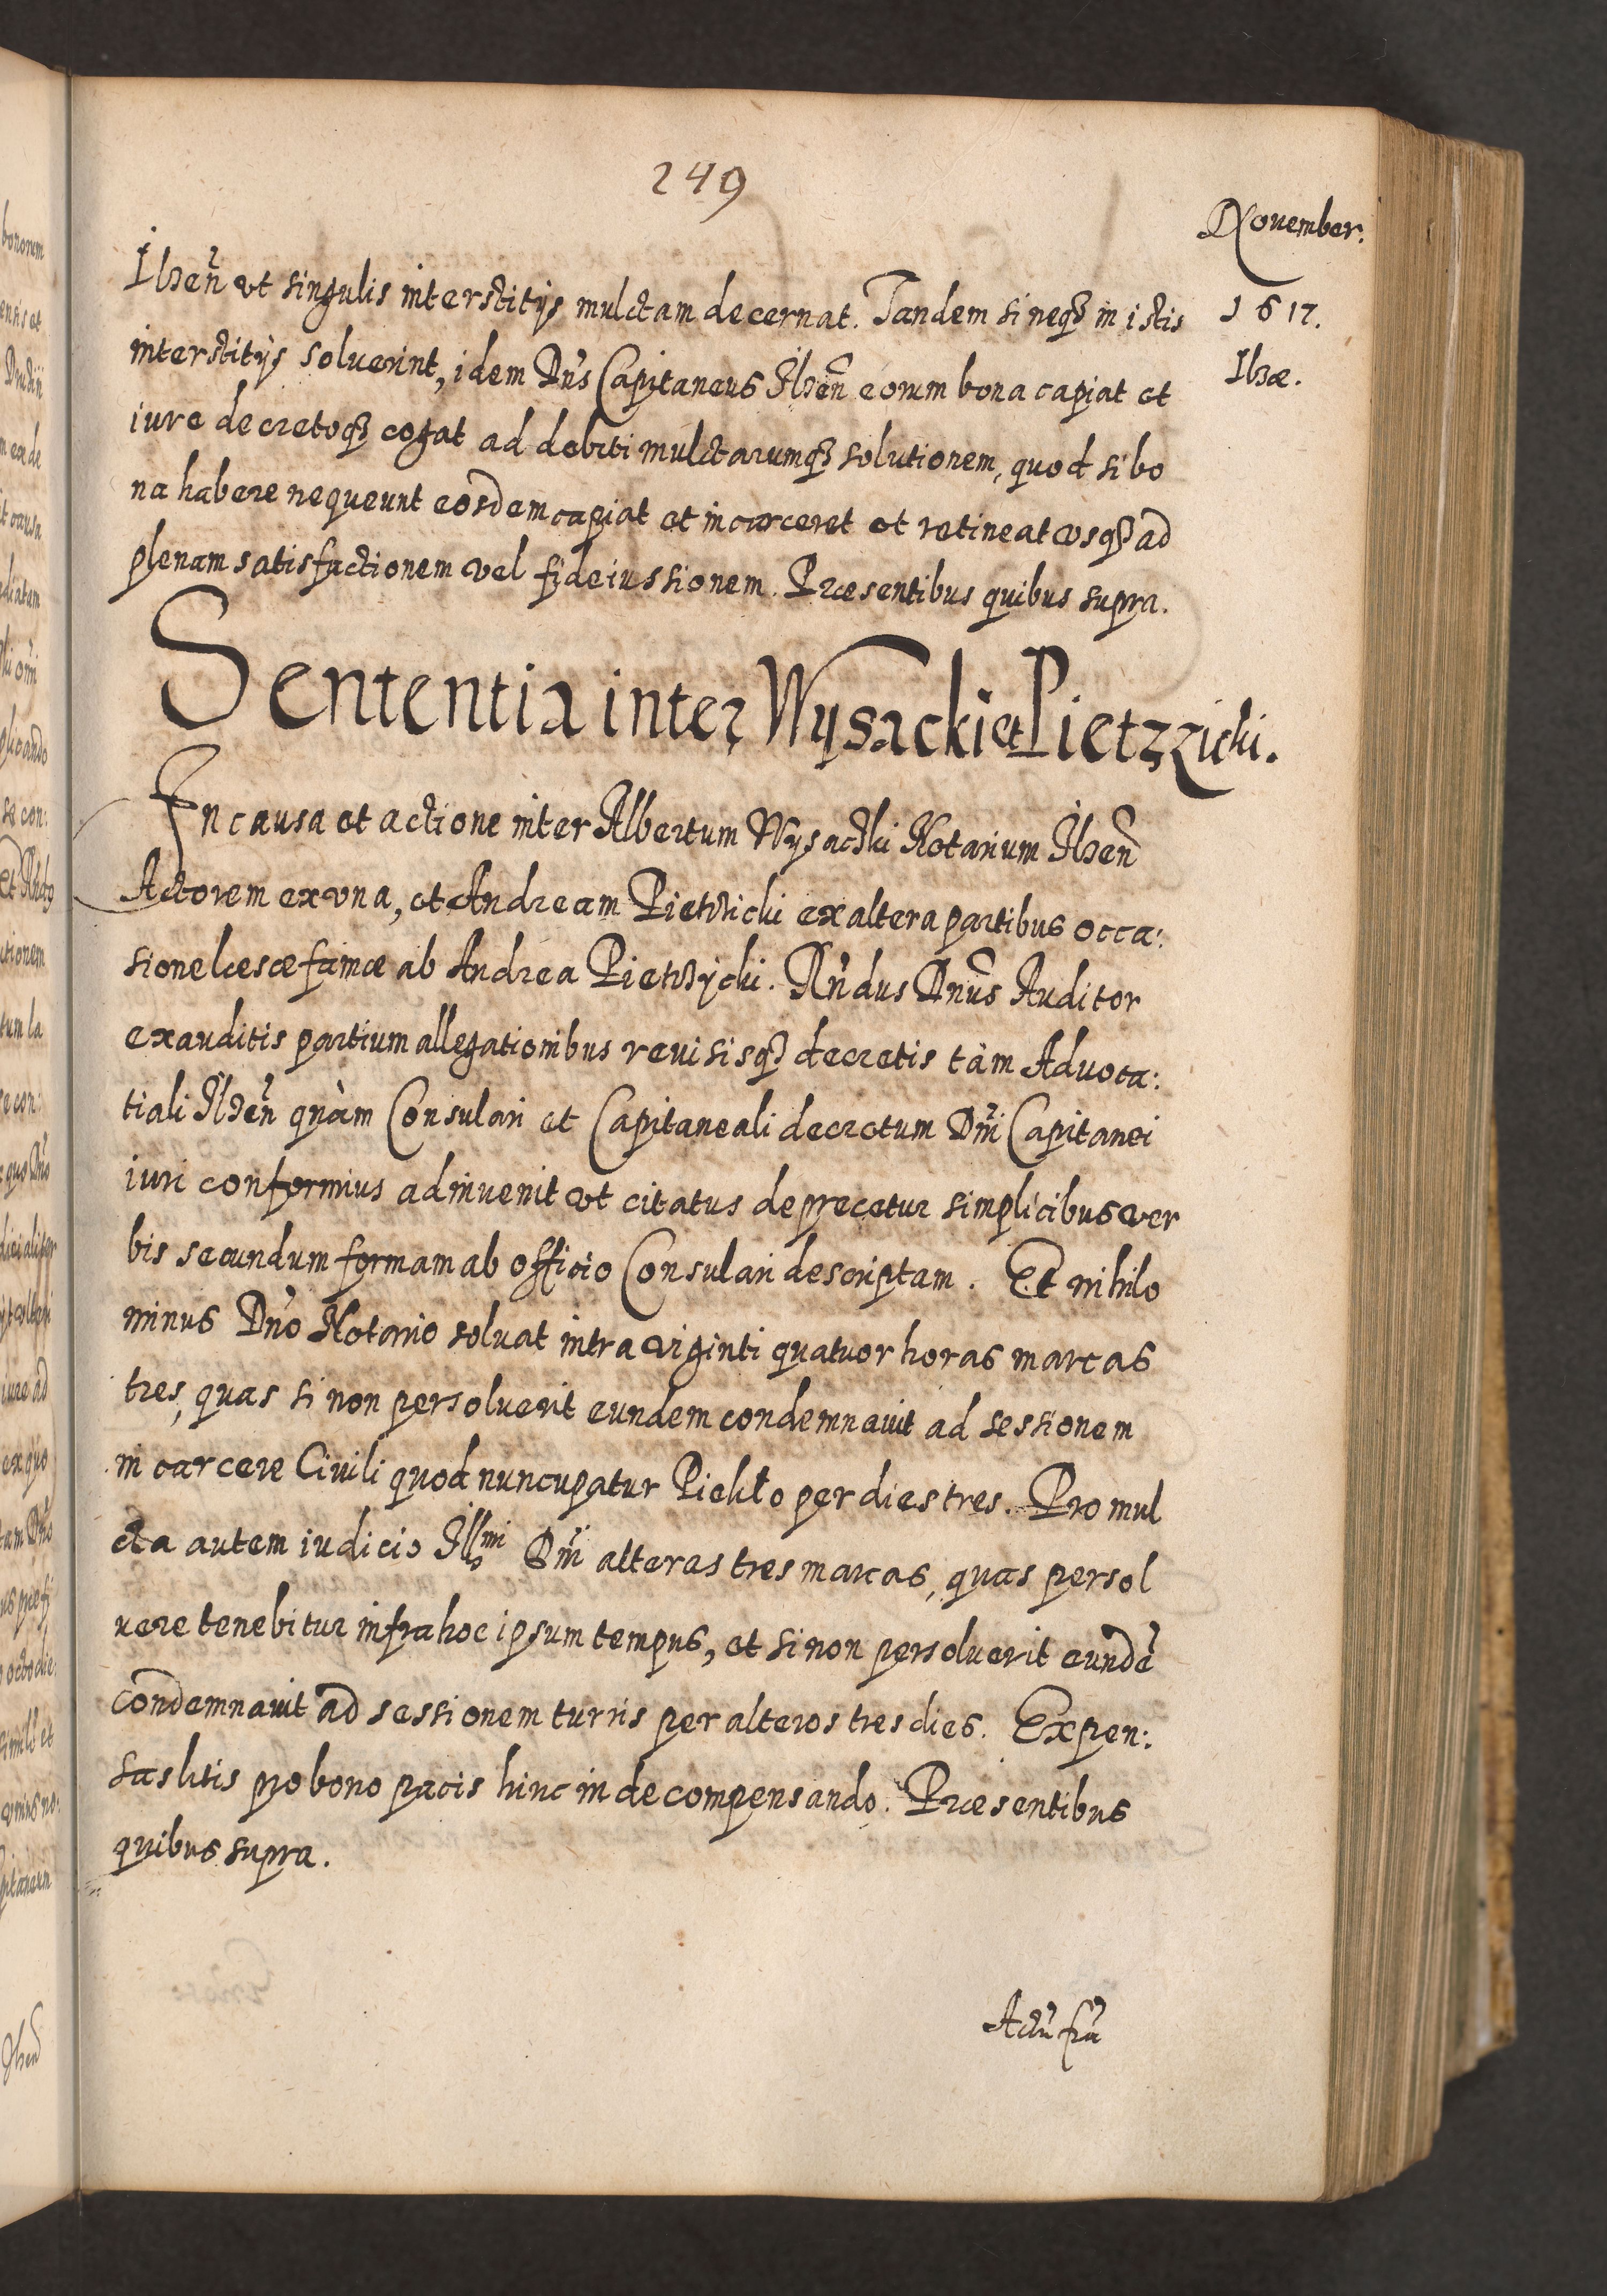 249
November.
1617.
Ilzæ.
Ilzen̄ vt singulis interstitijs mulctam decernat. Tandem si neq3 in istis
interstitijs soluerint, idem Dn̄s Capitaneus Ilzen̄ eorum bona capiat et
iure decretoq3 cogat ad debiti mulctarumq3 solutionem, quod si bo
na habere nequeunt eosdem capiat et incarceret et retineat vsq3 ad
plenam satisfactionem vel fideiussionem. Præsentibus quibus supra.
Sententia inter Wysacki et Pietrzicki.
In causa et actione inter Albertum Wysacki Notarium Ilzen̄
Actorem ex vna, et Andream Pietrzicki ex altera partibus occa:
sione læsæ famæ ab Andrea Pietrzycki. Rn̄dus Dnūs Auditor
exauditis partium allegationibus reuisisq3 decretis tàm Aduoca:
tiali Ilzen̄ quàm Consulari et Capitaneali decretum Dn̄i Capitanei
iuri conformius adinuenit vt citatus deprecetur simplicibus ver
bis secundum formam ab officio Consulari descriptam. Et nihilo
minus Dn̄o Notario soluat intra viginti quatuor horas marcas
tres, quas si non persoluerit eundem condemnauit ad sessionem
in carcere Ciuili quod nuncupatur Piekło per dies tres. Pro mul
cta autem iudicio Illmi Dn̄i alteras tres marcas, quas persol
uere tenebitur infra hoc ipsum tempus, et si non persoluerit eundē
condemnauit ad sessionem turris per alteros tres dies. Expen:
sas litis pro bono pacis hinc inde compensando. Præsentibus
quibus supra.
Actū fr̄a